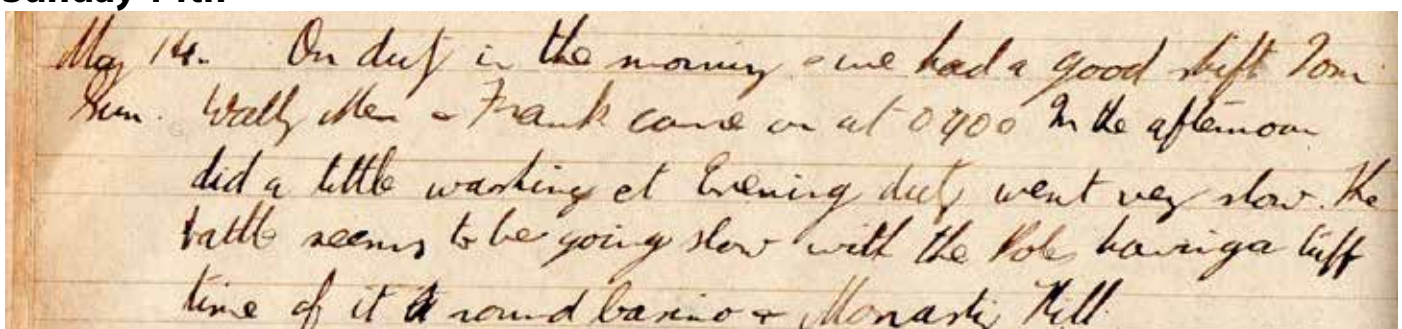 Sunday 14th
May 14. On duty in the morning & we had a good shift Tom
Sun. Wally Men & Frank came on at 0900 In the afternoon
did a little washing et Evening duty went very slow. The
battle seems to be going slow with the Poles having a tuff
time of it around Casino & Monastry Hill